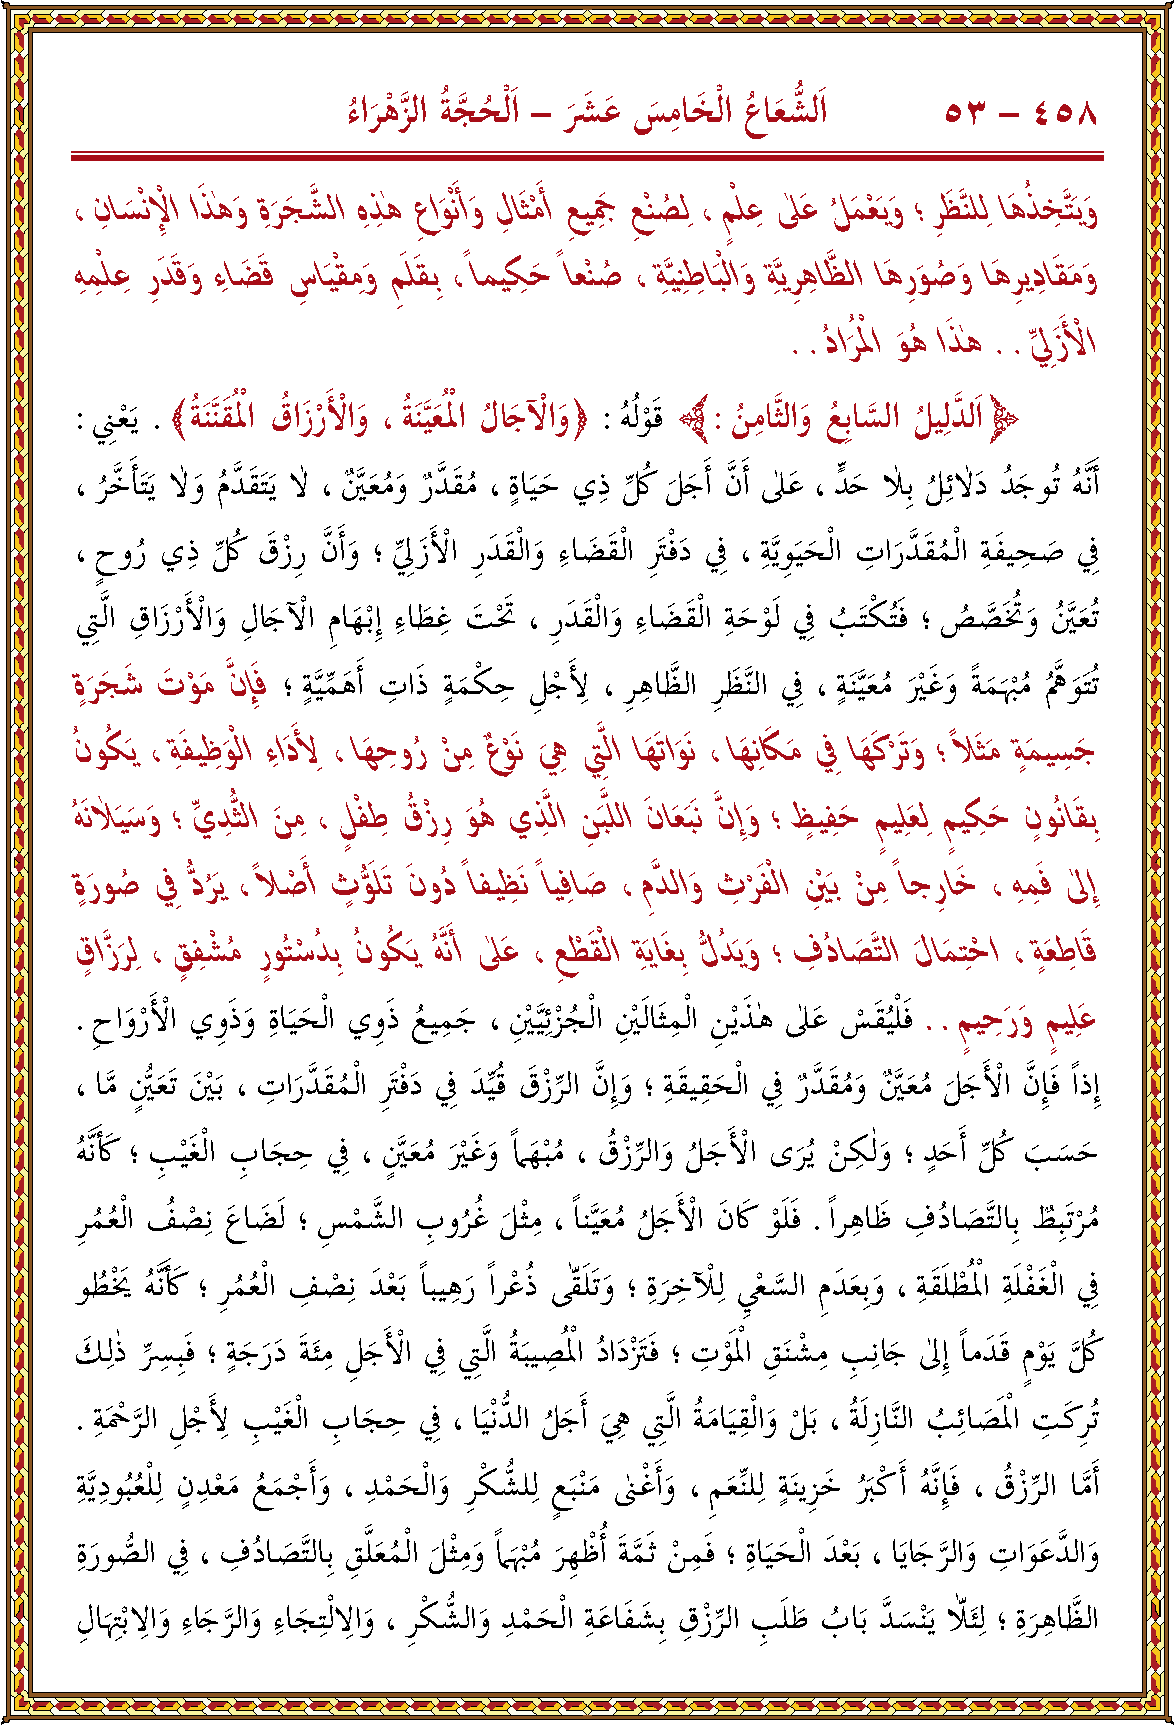 ٤٥٨ – ٥٣ اَلشُّعَاعُ الْخَامِسَ عَشَرَ – اَلْحُجَّةُ الزَّهْرَاءُ
وَيَتَّخِذُهَا لِلنَّظَرِ ؛ وَيَعْمَلُ عَلٰى عِلْمٍ ، لِصُنْعِ جَمِيعِ أَمْثَالِ وَأَنْوَاعِ هٰذِهِ الشَّجَرَةِ وَهٰذَا الْإِنْسَانِ ،
وَمَقَادِيرِهَا وَصُوَرِهَا الظَّاهِرِيَّةِ وَالْبَاطِنِيَّةِ ، صُنْعاً حَكِيماً ، بِقَلَمِ وَمِقْيَاسِ قَضَاءِ وَقَدَرِ عِلْمِهِ
الْأَزَلِيِّ . . هٰذَا هُوَ الْمُرَادُ . .
﴿اَلدَّلِيلُ السَّابِعُ وَالثَّامِنُ :﴾ قَوْلُهُ : ﴿وَالْآجَالُ الْمُعَيَّنَةُ ، وَالْأَرْزَاقُ الْمُقَنَّنَةُ﴾ . يَعْنِي :
أَنَّهُ تُوجَدُ دَلَائِلُ بِلَا حَدٍّ ، عَلٰى أَنَّ أَجَلَ كُلِّ ذِي حَيَاةٍ ، مُقَدَّرٌ وَمُعَيَّنٌ ، لَا يَتَقَدَّمُ وَلَا يَتَأَخَّرُ ،
فِي صَحِيفَةِ الْمُقَدَّرَاتِ الْحَيَوِيَّةِ ، فِي دَفْتَرِ الْقَضَاءِ وَالْقَدَرِ الْأَزَلِيِّ ؛ وَأَنَّ رِزْقَ كُلِّ ذِي رُوحٍ ،
تُعَيَّنُ وَتُخَصَّصُ ؛ فَتُكْتَبُ فِي لَوْحَةِ الْقَضَاءِ وَالْقَدَرِ ، تَحْتَ غِطَاءِ إِبْهَامِ الْآجَالِ وَالْأَرْزَاقِ الَّتِي
تُتَوَهَّمُ مُبْهَمَةً وَغَيْرَ مُعَيَّنَةٍ ، فِي النَّظَرِ الظَّاهِرِ ، لِأَجْلِ حِكْمَةٍ ذَاتِ أَهَمِّيَّةٍ ؛ فَإِنَّ مَوْتَ شَجَرَةٍ
جَسِيمَةٍ مَثَلاً ؛ وَتَرْكَهَا فِي مَكَانِهَا ، نَوَاتَهَا الَّتِي هِيَ نَوْعٌ مِنْ رُوحِهَا ، لِأَدَاءِ الْوَظِيفَةِ ، يَكُونُ
بِقَانُونٍ حَكِيمٍ لِعَلِيمٍ حَفِيظٍ ؛ وَإِنَّ نَبَعَانَ اللَّبَنِ الَّذِي هُوَ رِزْقُ طِفْلٍ ، مِنَ الثُّدِيِّ ؛ وَسَيَلَانَهُ
إِلٰى فَمِهِ ، خَارِجاً مِنْ بَيْنِ الْفَرْثِ وَالدَّمِ ، صَافِياً نَظِيفاً دُونَ تَلَوُّثٍ أَصْلاً ، يَرُدُّ فِي صُورَةٍ
قَاطِعَةٍ ، احْتِمَالَ التَّصَادُفِ ؛ وَيَدُلُّ بِغَايَةِ الْقَطْعِ ، عَلٰى أَنَّهُ يَكُونُ بِدُسْتُورٍ مُشْفِقٍ ، لِرَزَّاقٍ
عَلِيمٍ وَرَحِيمٍ . . فَلْيُقَسْ عَلٰى هٰذَيْنِ الْمِثَالَيْنِ الْجُزْئِيَّيْنِ ، جَمِيعُ ذَوِي الْحَيَاةِ وَذَوِي الْأَرْوَاحِ .
إِذاً فَإِنَّ الْأَجَلَ مُعَيَّنٌ وَمُقَدَّرٌ فِي الْحَقِيقَةِ ؛ وَإِنَّ الرِّزْقَ قُيِّدَ فِي دَفْتَرِ الْمُقَدَّرَاتِ ، بَيْنَ تَعَيُّنٍ مَّا ،
حَسَبَ كُلِّ أَحَدٍ ؛ وَلٰكِنْ يُرَى الْأَجَلُ وَالرِّزْقُ ، مُبْهَماً وَغَيْرَ مُعَيَّنٍ ، فِي حِجَابِ الْغَيْبِ ؛ كَأَنَّهُ
مُرْتَبِطٌ بِالتَّصَادُفِ ظَاهِراً . فَلَوْ كَانَ الْأَجَلُ مُعَيَّناً ، مِثْلَ غُرُوبِ الشَّمْسِ ؛ لَضَاعَ نِصْفُ الْعُمُرِ
فِي الْغَفْلَةِ الْمُطْلَقَةِ ، وَبِعَدَمِ السَّعْيِ لِلْآخِرَةِ ؛ وَتَلَقَّى ذُعْراً رَهِيباً بَعْدَ نِصْفِ الْعُمُرِ ؛ كَأَنَّهُ يَخْطُو
كُلَّ يَوْمٍ قَدَماً إِلٰى جَانِبِ مِشْنَقِ الْمَوْتِ ؛ فَتَزْدَادُ الْمُصِيبَةُ الَّتِي فِي الْأَجَلِ مِئَةَ دَرَجَةٍ ؛ فَبِسِرِّ ذٰلِكَ
تُرِكَتِ الْمَصَائِبُ النَّازِلَةُ ، بَلْ وَالْقِيَامَةُ الَّتِي هِيَ أَجَلُ الدُّنْيَا ، فِي حِجَابِ الْغَيْبِ لِأَجْلِ الرَّحْمَةِ .
أَمَّا الرِّزْقُ ، فَإِنَّهُ أَكْبَرُ خَزِينَةٍ لِلنِّعَمِ ، وَأَغْنٰى مَنْبَعٍ لِلشُّكْرِ وَالْحَمْدِ ، وَأَجْمَعُ مَعْدِنٍ لِلْعُبُودِيَّةِ
وَالدَّعَوَاتِ وَالرَّجَايَا ، بَعْدَ الْحَيَاةِ ؛ فَمِنْ ثَمَّةَ أُظْهِرَ مُبْهَماً وَمِثْلَ الْمُعَلَّقِ بِالتَّصَادُفِ ، فِي الصُّورَةِ
الظَّاهِرَةِ ؛ لِئَلَّا يَنْسَدَّ بَابُ طَلَبِ الرِّزْقِ بِشَفَاعَةِ الْحَمْدِ وَالشُّكْرِ ، وَالِالْتِجَاءِ وَالرَّجَاءِ وَالِابْتِهَالِ